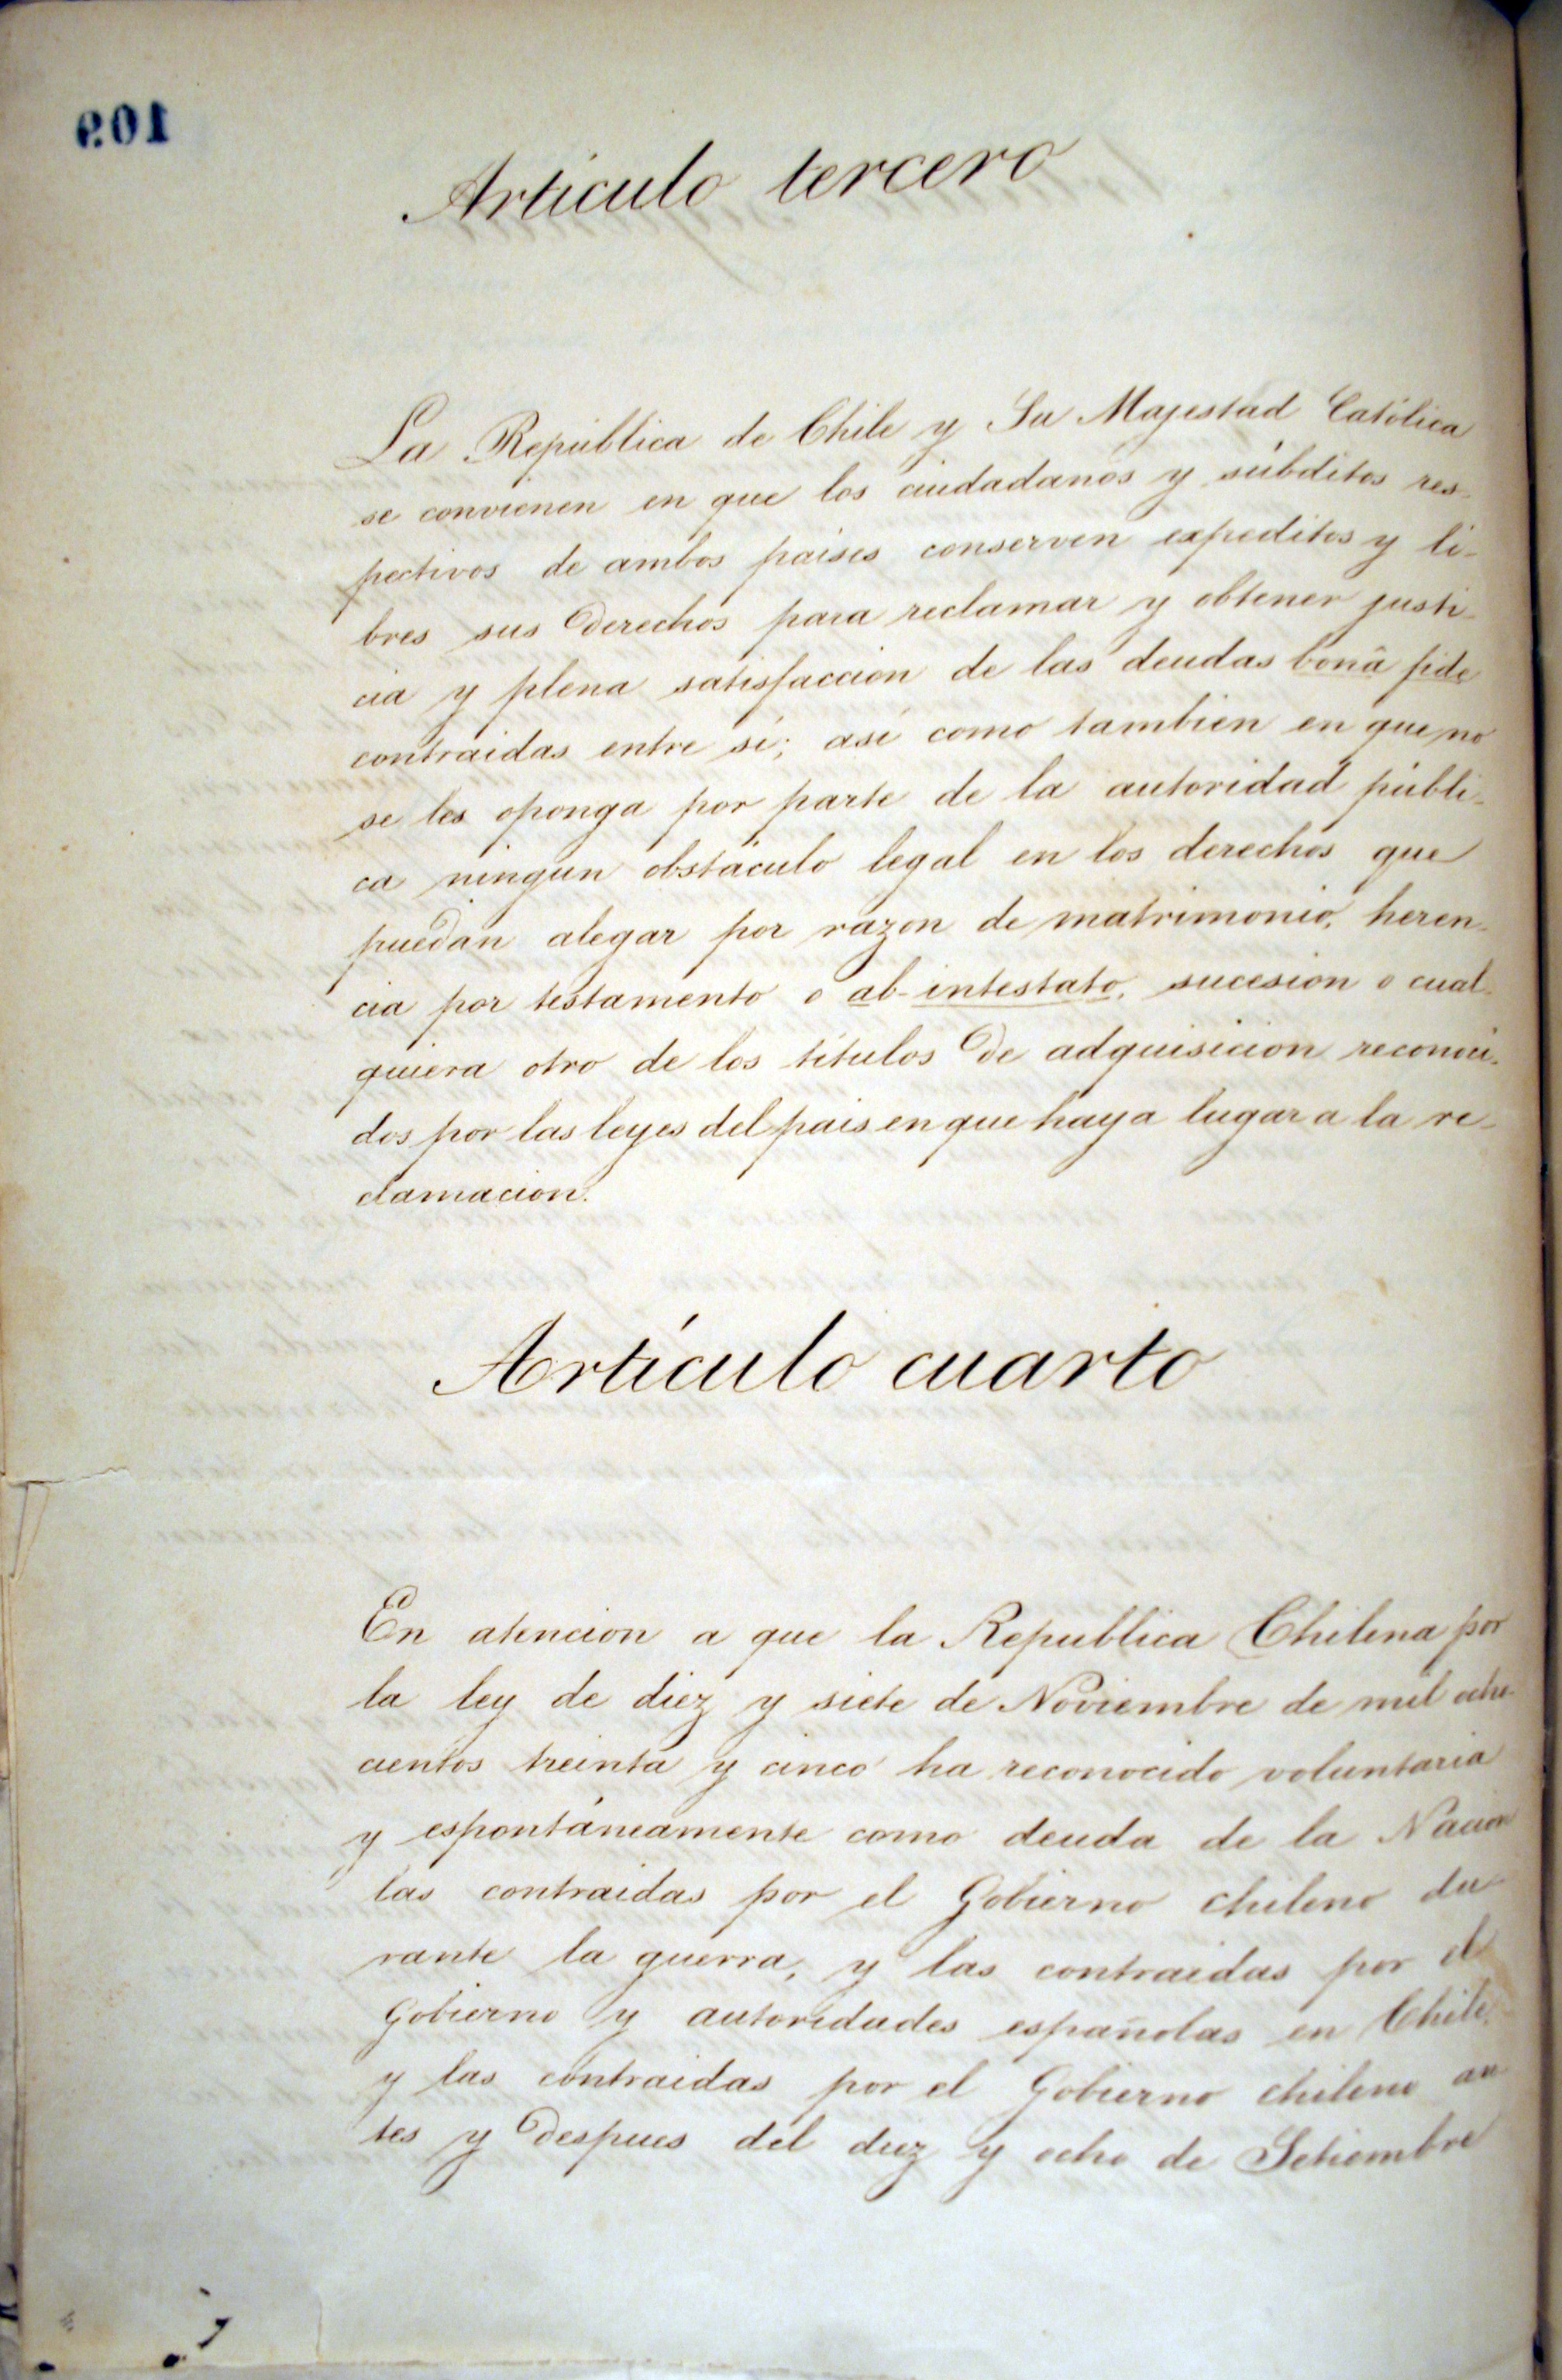 109
Artículo tercero
La República de Chile y Su Majestad Católica
se convienen en que los ciudadanos y súbditos res-
pectivos de ambos paises conserven expeditos y li-
bres sus derechos para reclamar y obtener justi-
cia y plena satisfaccion de las deudas bonâ fide
contraidas entre sí; así como tambien en que no
se les oponga por parte de la autoridad públi-
ca ningun obstáculo legal en los derechos que
puedan alegar por razon de matrimonio, heren-
cia por testamento o ab-intestato, sucesion o cual-
quiera otro de los títulos de adquisicion reconoci-
dos por las leyes del pais en que haya lugar a la re-
clamacion.
Artículo cuarto
En atencion a que la Republica Chilena por
la ley de diez y siete de Noviembre de mil ocho-
cientos treinta y cinco ha reconocido voluntaria
y espontáneamente como deuda de la Nacion
las contraidas por el Gobierno chileno du-
rante la guerra, y las contraidas por el
Gobierno y autoridades españolas en Chile,
y las contraidas por el Gobierno chileno an-
tes y despues del diez y ocho de Setiembre